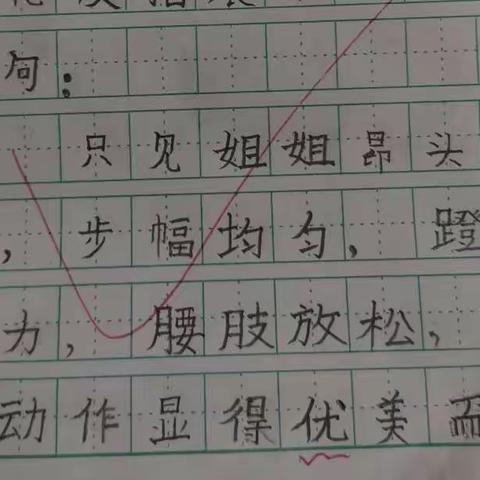 句：
只见姐姐昂头
，步幅均匀，蹬
力，腰肢放松，
动作显得优美而